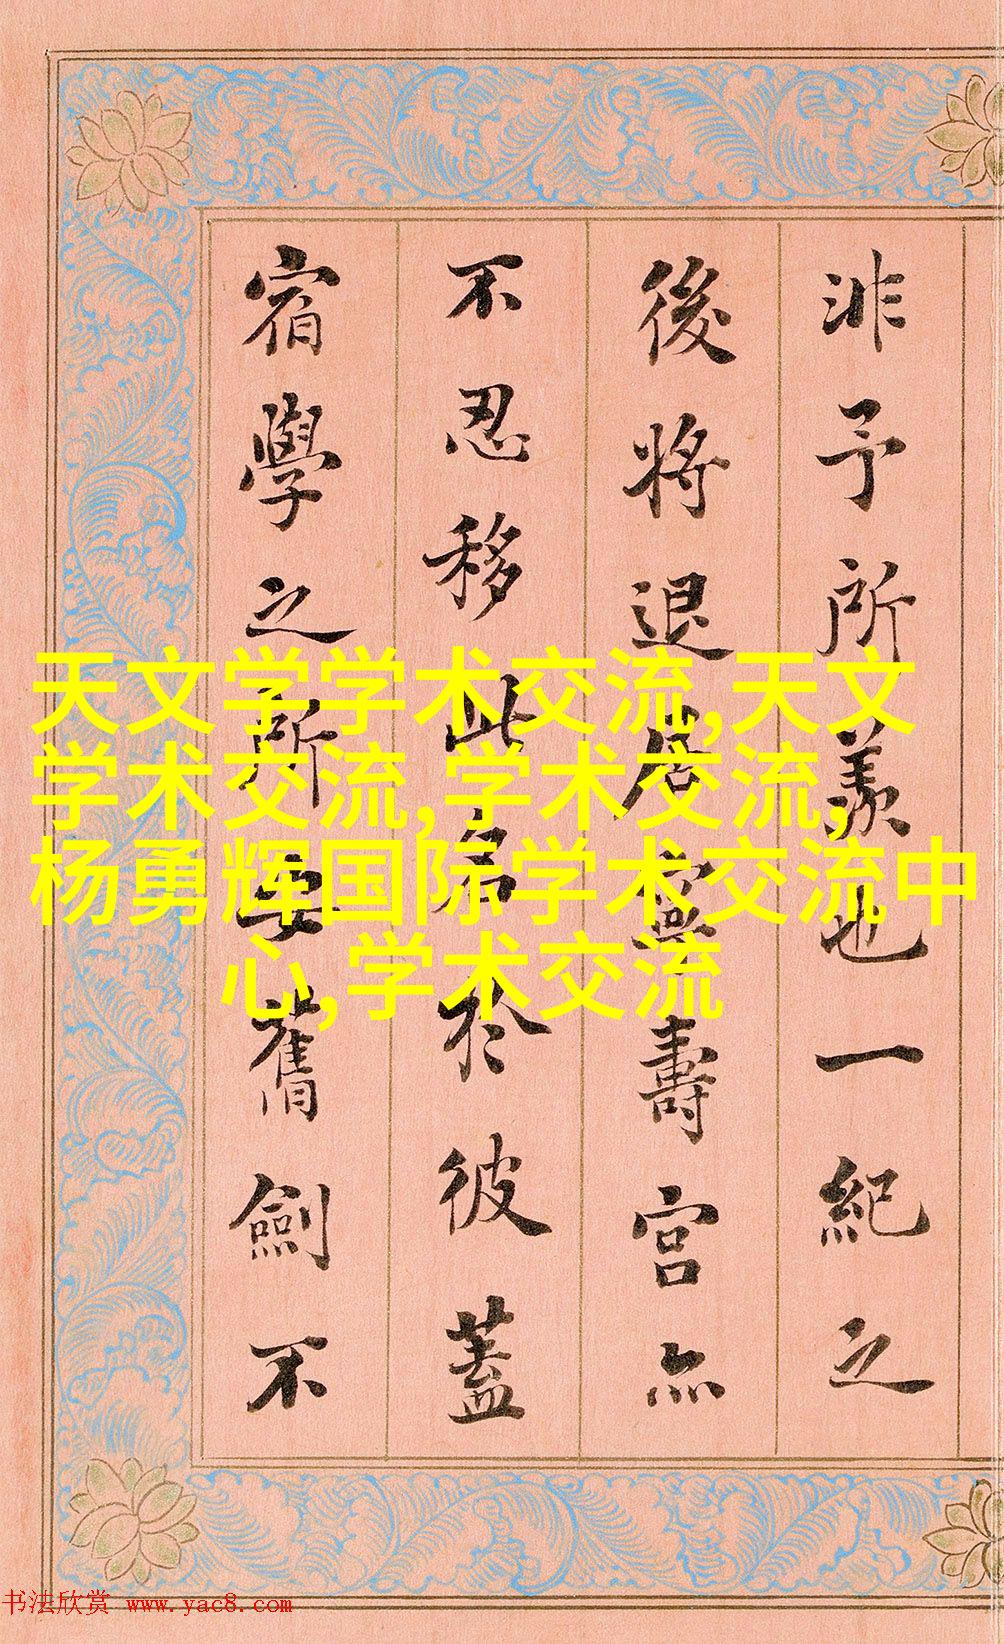 非予所羨也一紀之
後將退居寧壽宮亦
不忍移此名於彼蓋
宿學之所安舊劍不
天文学学术交流,天文
学术交流,学术交流,
杨勇辉国际学术交流中
心,学术交流
书法欣赏 www.yac8.com